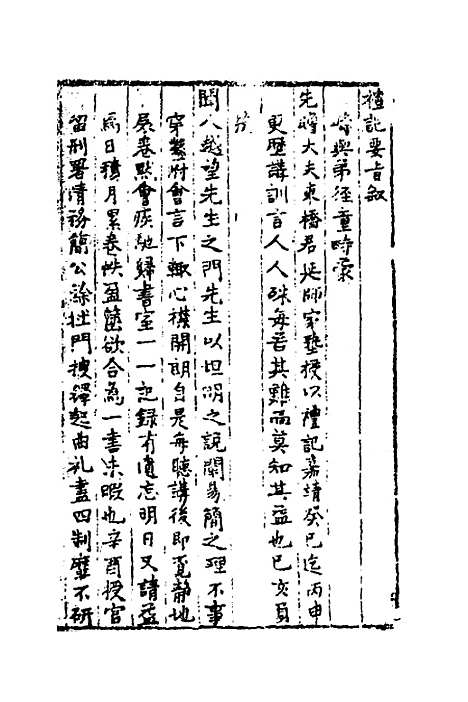 禮記要旨叙
時與弟徑童時蒙
先贈大夫東橋君延師家塾授以禮記嘉靖癸巳迄丙申
更歴講訓言人人殊每苦其難而莫知其益也已亥負
笈
闗人越望先生之門先生以坦明之說闡易簡之理不事
穿鑿附會言下輙心襟開朗自是每聽講後即覔静地
展卷黙會疾馳歸書室一一記録有遺忘明日又請益
焉日積月累卷帙盈篋欲合為一書未暇也辛酉授官
留刑署清務簡公餘杜門搜繹起曲礼盡四制靡不研